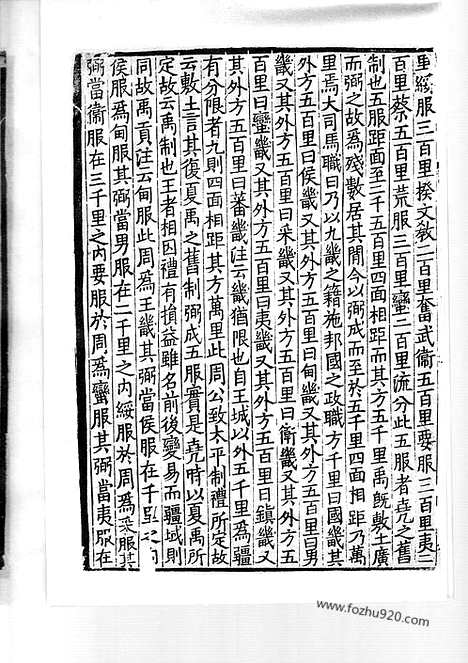 里綏服三百里揆文敎二百里奮武衛五百里要服三百里夷二
百里蔡五百里荒服三百里蠻二百里流分此五服者堯之舊
制也五服距面至二千五百里四面相距其方五千里禹旣敷土廣
而弼之故爲殘數居其間今以弼成而至於五千里四面相距乃萬
里焉大司馬職曰乃以九畿之籍施邦國之政職方千里曰國畿其
外方五百里曰侯畿又其外方五百里曰甸畿又其外方五百里曰男
畿又其外方五百里曰采畿又其外方五百里曰衛畿又其外方五
百里曰蠻畿又其外方五百里曰夷畿又其外方五百里曰鎮畿又
其外方五百里曰蕃畿注云畿猶限也自王城以外五千里爲疆
有分限者九則四面相距其方萬里此周公致太平制禮所定故
云敷土言其復夏禹之舊制弼成五服實是堯時以夏禹所
定故云禹制也王者相因禮有損益雖名前後變易而疆域則
同故禹貢注云甸服此周爲王畿其弼當侯服在千里之內
侯服爲甸服其弼當男服在二千里之內綏服於周爲采服其
弼當衛服在三千里之內要服於周爲蠻服其弼當夷服在
http://www.fozhu920.com/